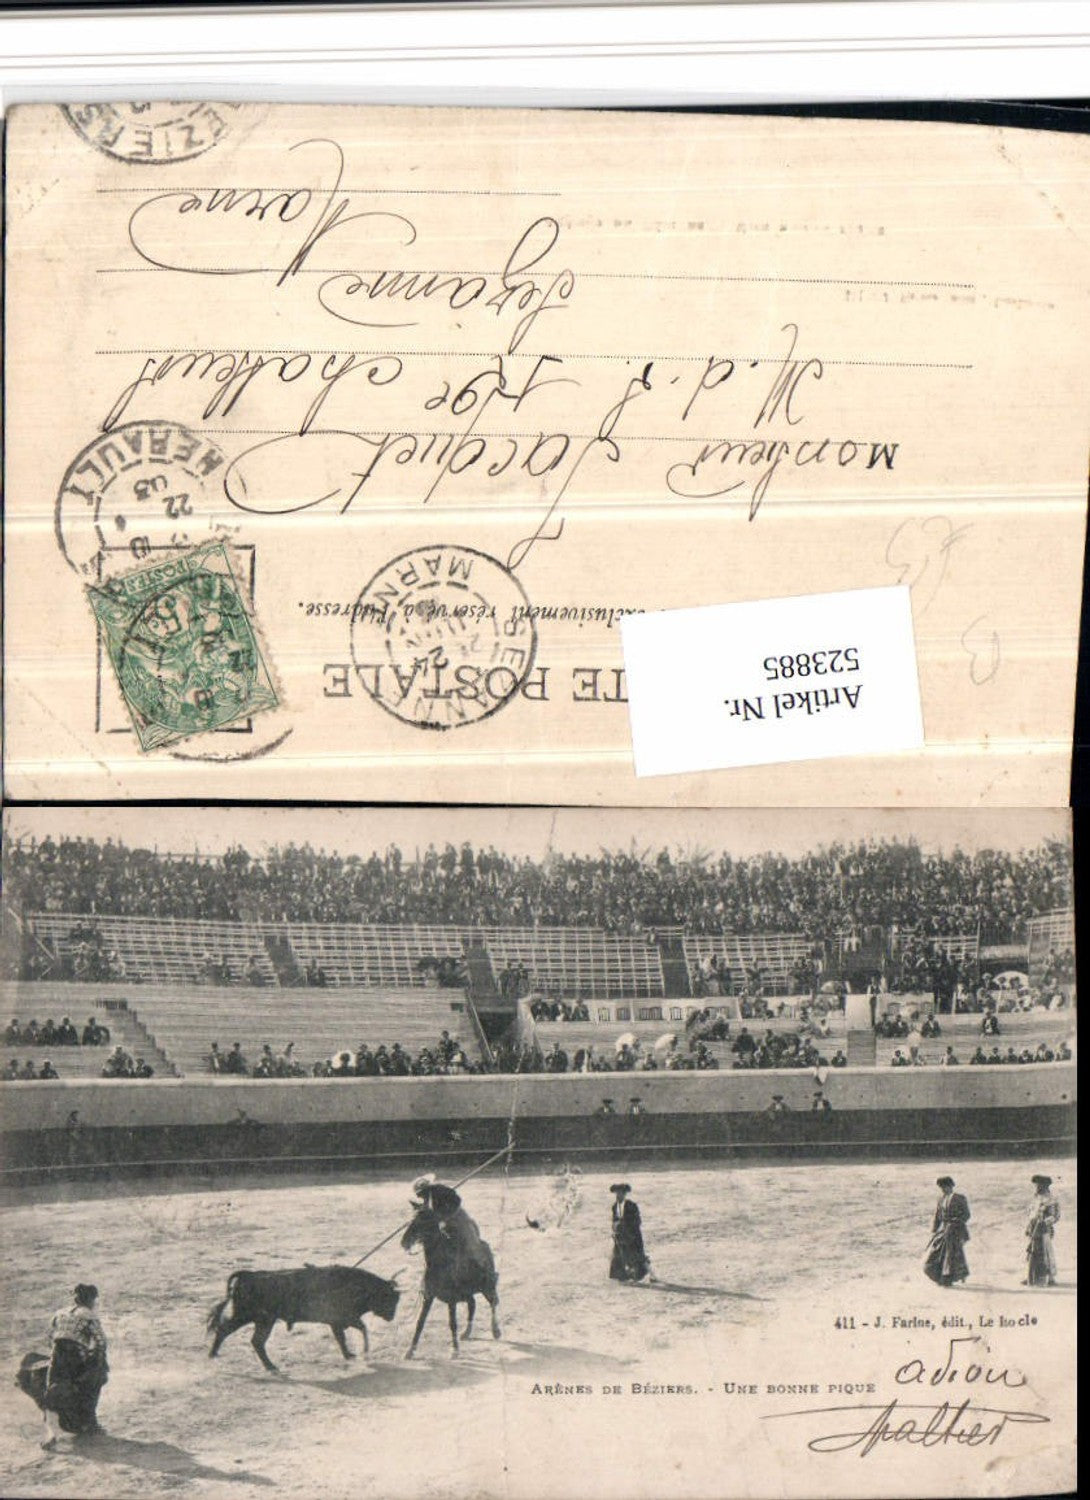 TE POSTALE
exclusivement réservé à l'adresse.
Artikel Nr.
523885
Monsieur Jacquet
M. d. L.
Sezanne
Marne
BEZIERS
HERAULT
22
03
SEZANNE
MARNE
24
POSTES
411 - J. Farine, édit., Le bo cle
ARÈNES DE BÉZIERS. - UNE BONNE PIQUE